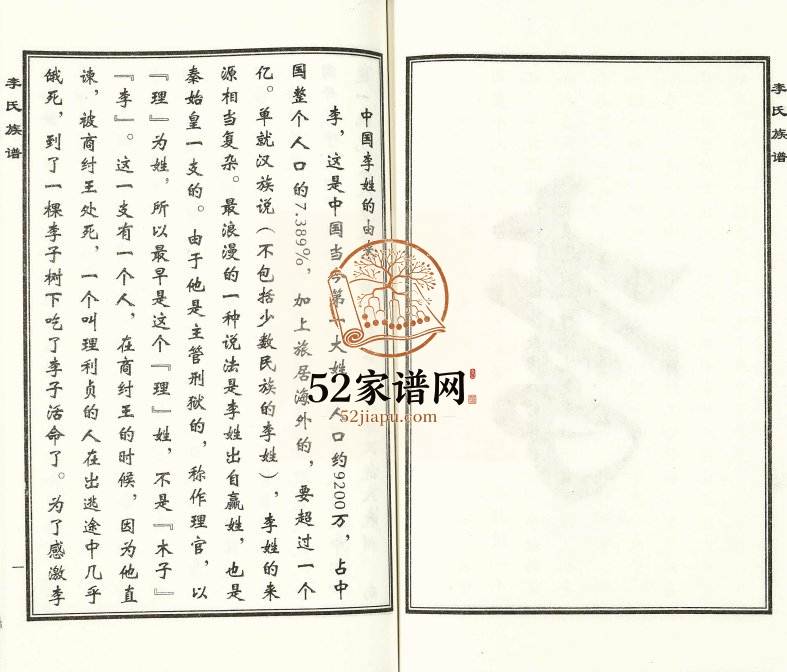 李氏族谱
李氏族谱
中国李姓的由来
李，这是中国当今第一大姓，人口约9200万，占中
国整个人口的7.389%，加上旅居海外的，要超过一个
亿。单就汉族说（不包括少数民族的李姓），李姓的来
源相当复杂。最浪漫的一种说法是李姓出自嬴姓，也是
秦始皇一支的。由于他是主管刑狱的，称作理官，以
『理』为姓，所以最早是这个『理』姓，不是『木子』
『李』。这一支有一个人，在商纣王的时候，因为他直
谏，被商纣王处死，一个叫理利贞的人在出逃途中几乎
饿死，到了一棵李子树下吃了李子活命了。为了感激李
一
52家谱网
52jiapu.com